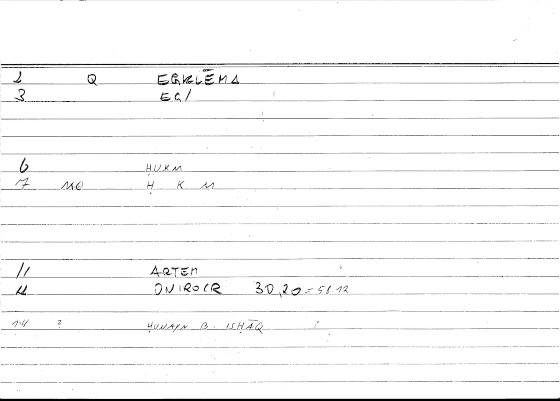 2 Q EGKLĒMA
3 EG/
6 ḤUKM
7 MQ Ḥ K M
11 ARTEM
12 ONIROCR 30,20 = 58.12
14 2 ḤUNAYN B. ISḤĀQ